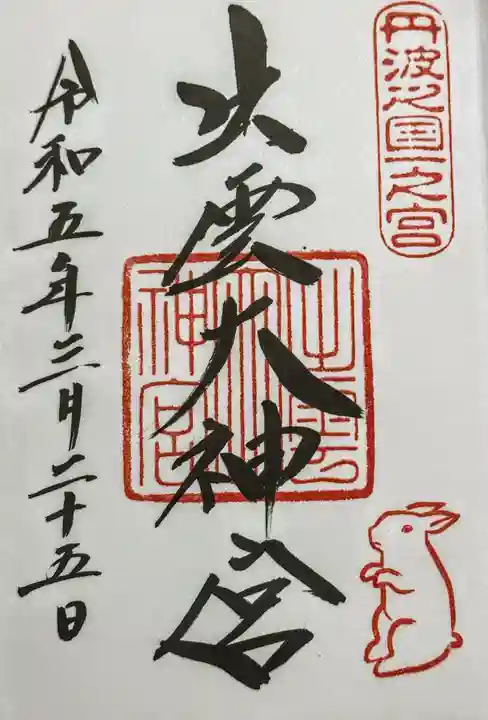 丹波之国一之宮
出雲大神宮
出雲大神宮
令和五年三月二十五日